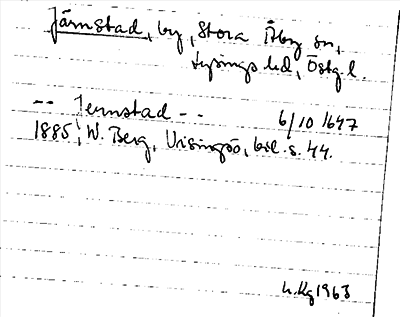 Järnstad, by, Stora Åby sn,
Lysings hd, Östg.l.
-- Jernstad -- 6/10 1647
1885, W. Berg, Visingsö, bil. s. 44.
h.Kg 1963